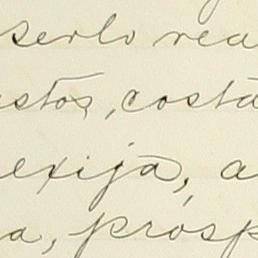 serlo rea
stos, costa
exija, a
a, prosp